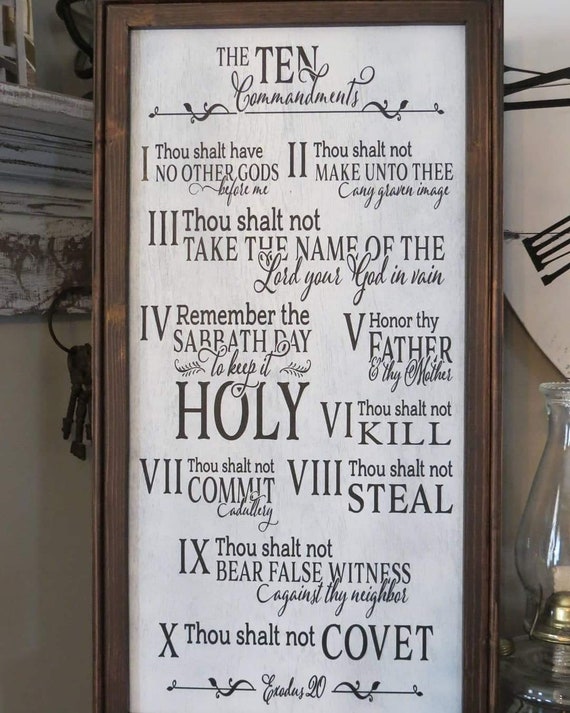 THE TEN
Commandments
I Thou shalt have
NO OTHER GODS
before me
II Thou shalt not
MAKE UNTO THEE
any graven image
III Thou shalt not
TAKE THE NAME OF THE
Lord your God in vain
IV Remember the
SABBATH DAY
To keep it
HOLY
V Honor thy
FATHER
& thy Mother
VI Thou shalt not
KILL
VII Thou shalt not
COMMIT
adultery
VIII Thou shalt not
STEAL
IX Thou shalt not
BEAR FALSE WITNESS
against thy neighbor
X Thou shalt not COVET
Exodus 20